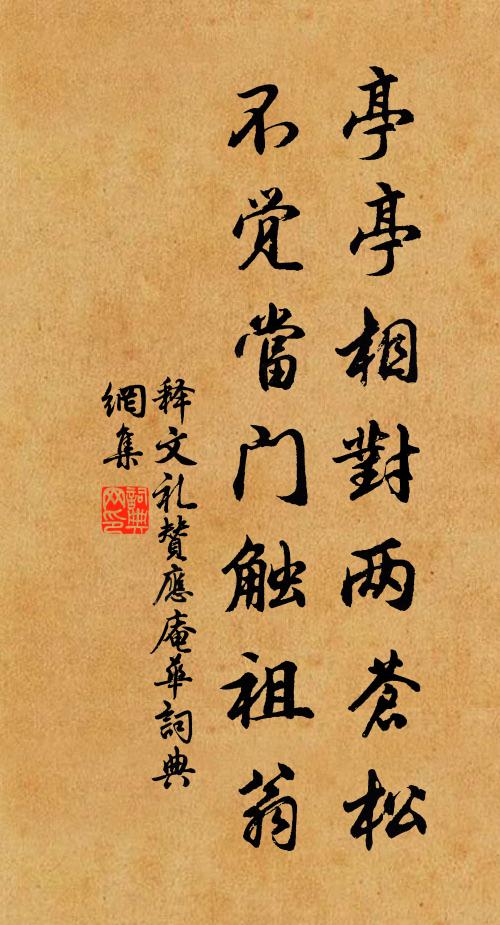 亭亭相對两蒼松
不觉當门触祖翁
释文礼赞應庵華詞典
網集
詞典网印